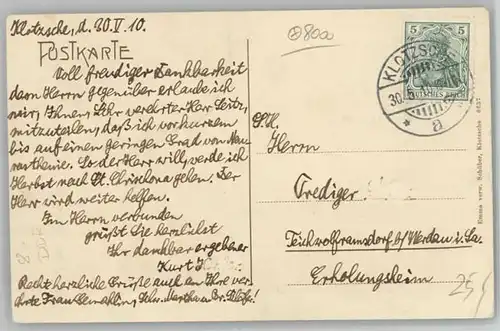 Klotzsche, d. 30.V.10.
POSTKARTE
Voll freudiger Dankbarkeit
dem Herrn gegenüber erlaube ich
mir, Ihnen, sehr verehrter Herr Seitz,
mitzuteilen, daß ich vor kurzem
bis auf einen geringen Grad von Neu-
rasthenie. So der Herr will, werde ich
Herbst nach St. Chrischona gehen. Der
Herr wird weiter helfen.
Im Herrn verbunden
grüßt Sie herzlichst
Ihr dankbar ergebener
Kurt
Recht herzliche Grüße auch an Ihre ver-
ehrte Frau Gemahlin, Schw. Martha u. Br.
800
5
DEUTSCHES REICH
KLOTZSCHE
30.5.
* a
S.H.
Herrn
Prediger
Teichwolframsdorf b/Werdau i. Sa.
Erholungsheim
Emma verw. Schöber, Klotzsche
25